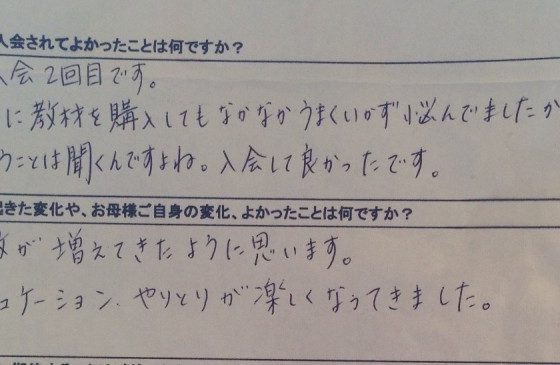 入会されてよかったことは何ですか？
入会2回目です。
に教材を購入してもなかなかうまくいかず悩んでましたが
うことは聞くんですよね。入会して良かったです。
起きた変化や、お母様ご自身の変化、よかったことは何ですか？
が増えてきたように思います。
ュケーション、やりとりが楽しくなってきました。